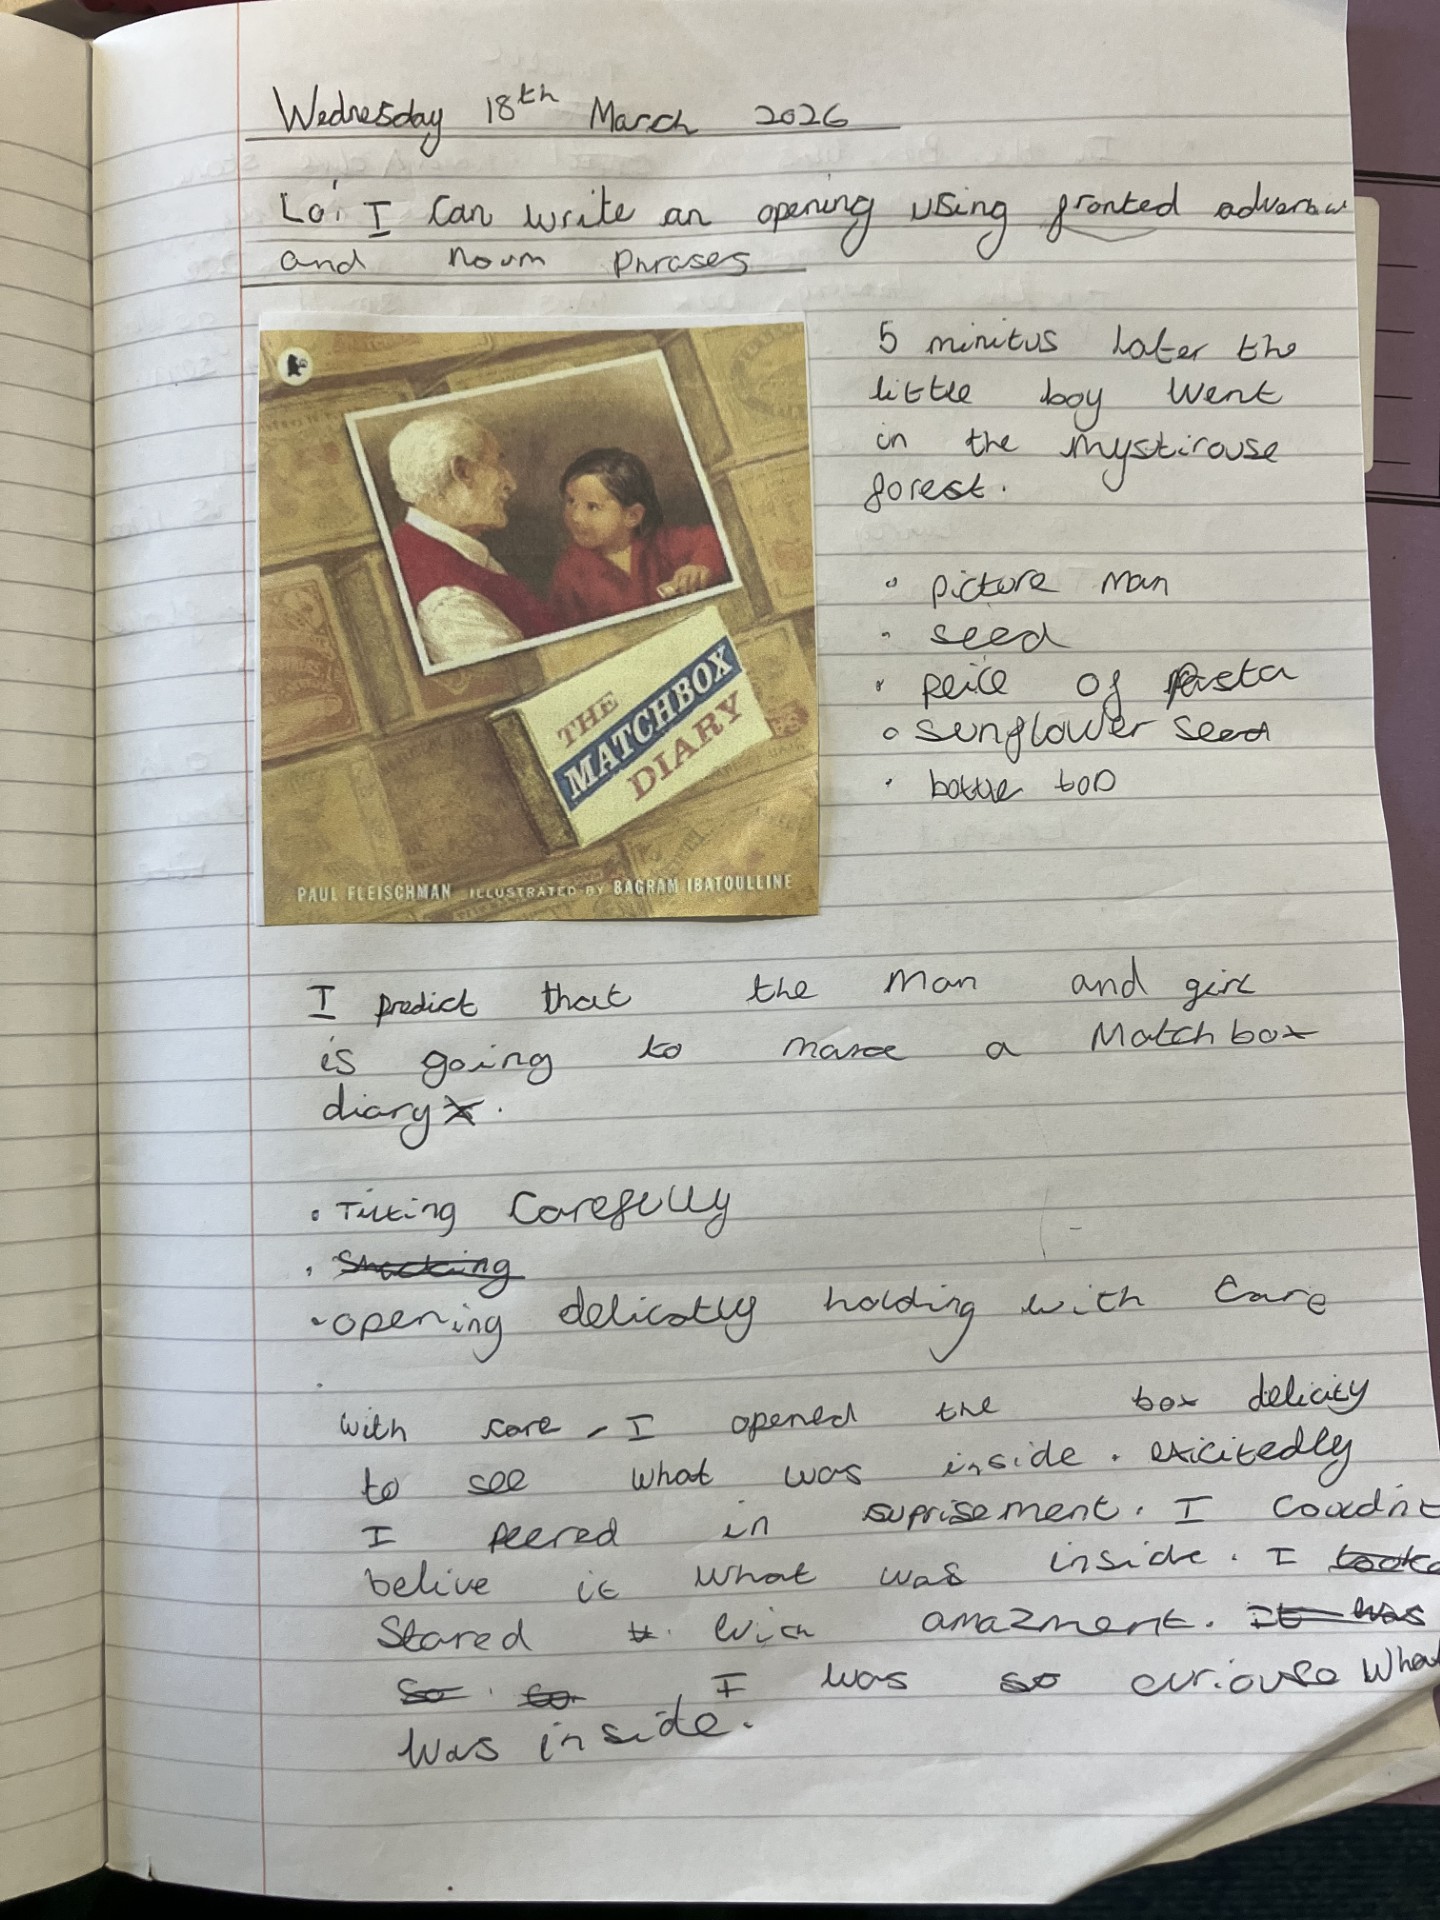 Wednesday 18th March 2026
Lo: I can write an opening using fronted
and noun phrases
5 minitus later the
little boy went
in the mystirouse
forest.
• picture man
• seed
• peice of pasta
• sunflower seed
• bottle top
THE
MATCHBOX
DIARY
PAUL FLEISCHMAN ILLUSTRATED BY BAGRAM IBATOULLINE
I predict that the man and girl
is going to make a Matchbox
diary.
• Tilting carefully
• Shacking
• opening delicatly holding with care
with care, I opened the box delicitly
to see what was inside. exicitedly
I peered in suprisement. I
belive it what was inside. I
Stared with amazment. It was
so so I was so curiouse what
was inside.